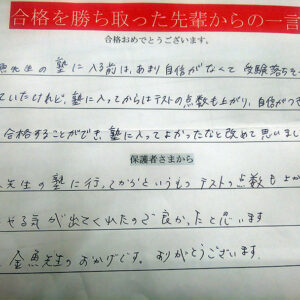 合格を勝ち取った先輩からの一言
合格おめでとうございます。
魚先生の塾に入る前は、あまり自信がなくて受験落ちも
ていたけれど、塾に入ってからはテストの点数も上がり、自信がつき
合格することができ、塾に入ってよかったなと改めて思いまし
保護者さまから
先生の塾に行ってからというものテストの点数も上が
やる気が出てくれたので良かったと思います
金魚先生のおかげです。ありがとうございます。